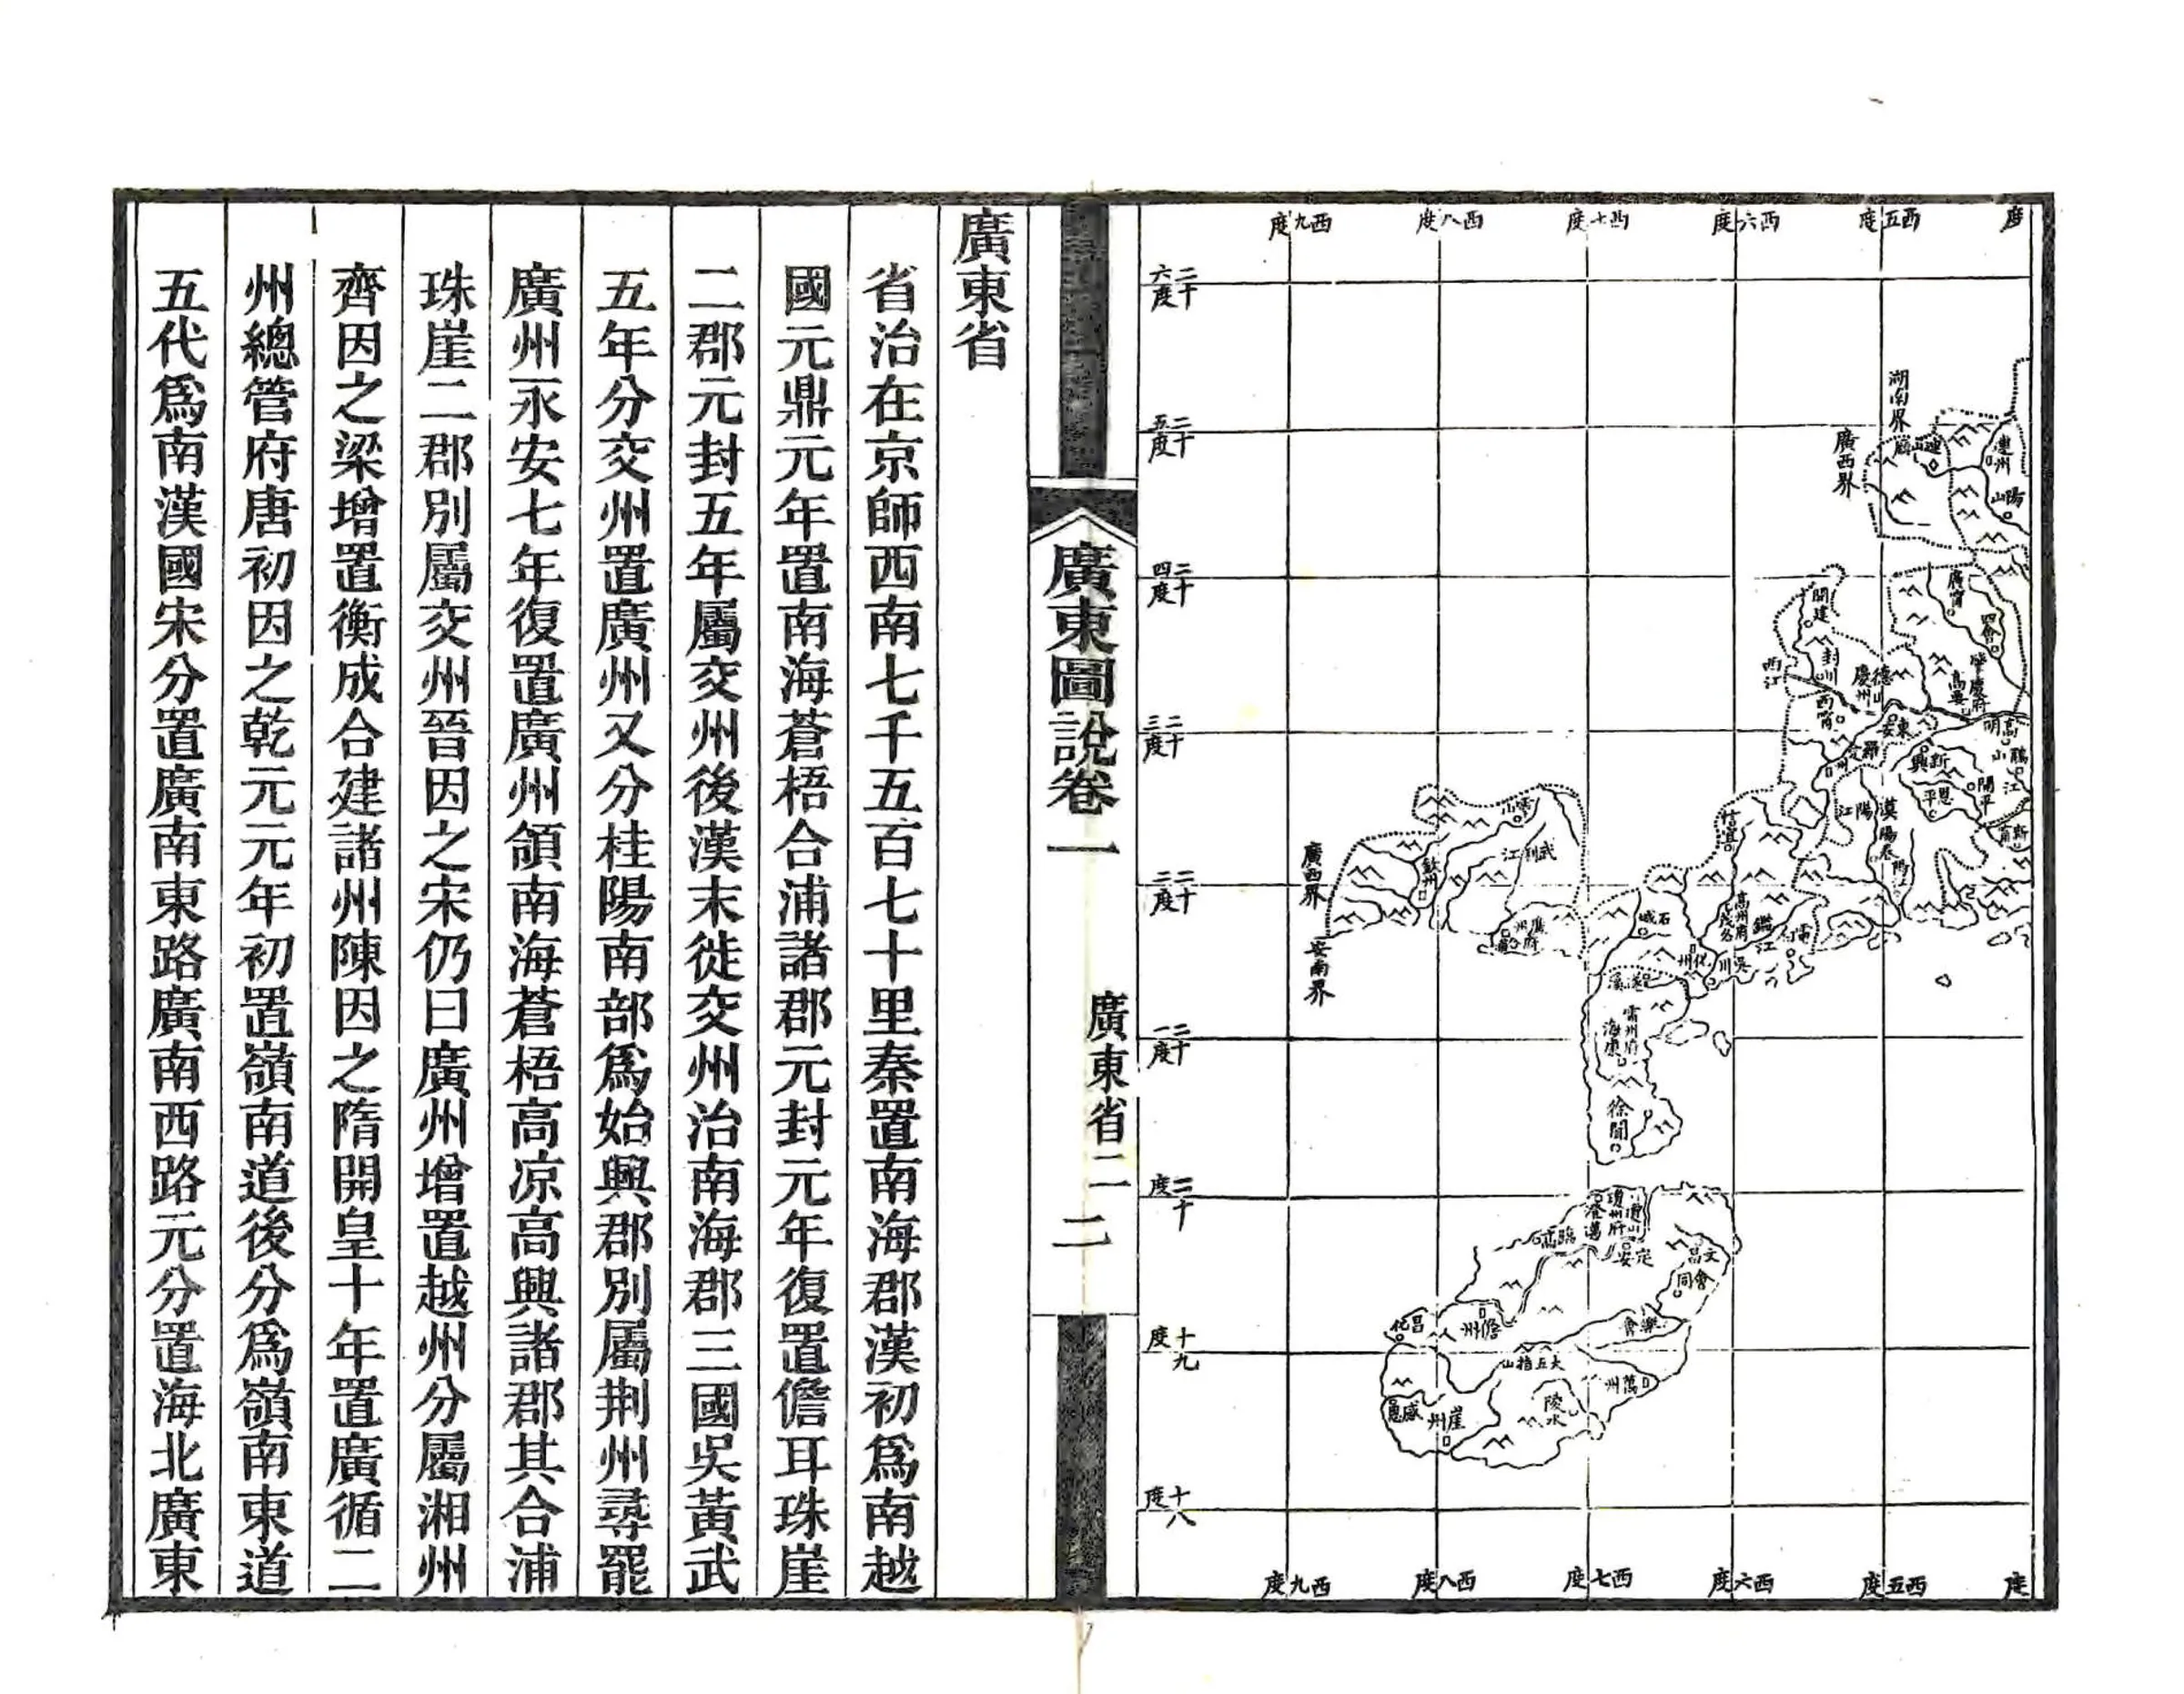 西九度
西八度
西十度
西六度
西五度
度
二十六度
二十五度
二十四度
二十三度
二十二度
二十一度
二十度
十九度
十八度
湖南界
廣西界
連山廳
連州
陽山
廣寧
四會
開建
封川
西江
德慶州
肇慶府
高要
西寧
東安
高明
鶴山
羅定州
新興
開平
恩平
陽江
陽春
新寧
信宜
靈山
武利江
欽州
廣西界
安南界
廉州府
石城
高州府
茂名
鑑江
化州
吳川
遂溪
雷州府
海康
徐聞
瓊州府
瓊山
澄邁
臨高
定安
文昌
會同
儋州
昌化
樂會
大五指山
萬州
陵水
感恩
崖州
西九度
西八度
西七度
西六度
西五度
度
廣東圖說卷一
廣東省二
二
廣東省
省治在京師西南七千五百七十里秦置南海郡漢初爲南越
國元鼎元年置南海蒼梧合浦諸郡元封元年復置儋耳珠崖
二郡元封五年屬交州後漢末徙交州治南海郡三國吳黃武
五年分交州置廣州又分桂陽南部爲始興郡別屬荆州尋罷
廣州永安七年復置廣州領南海蒼梧高凉高興諸郡其合浦
珠崖二郡別屬交州晉因之宋仍曰廣州增置越州分屬湘州
齊因之梁增置衡成合建諸州陳因之隋開皇十年置廣循二
州總管府唐初因之乾元元年初置嶺南道後分爲嶺南東道
五代爲南漢國宋分置廣南東路廣南西路元分置海北廣東